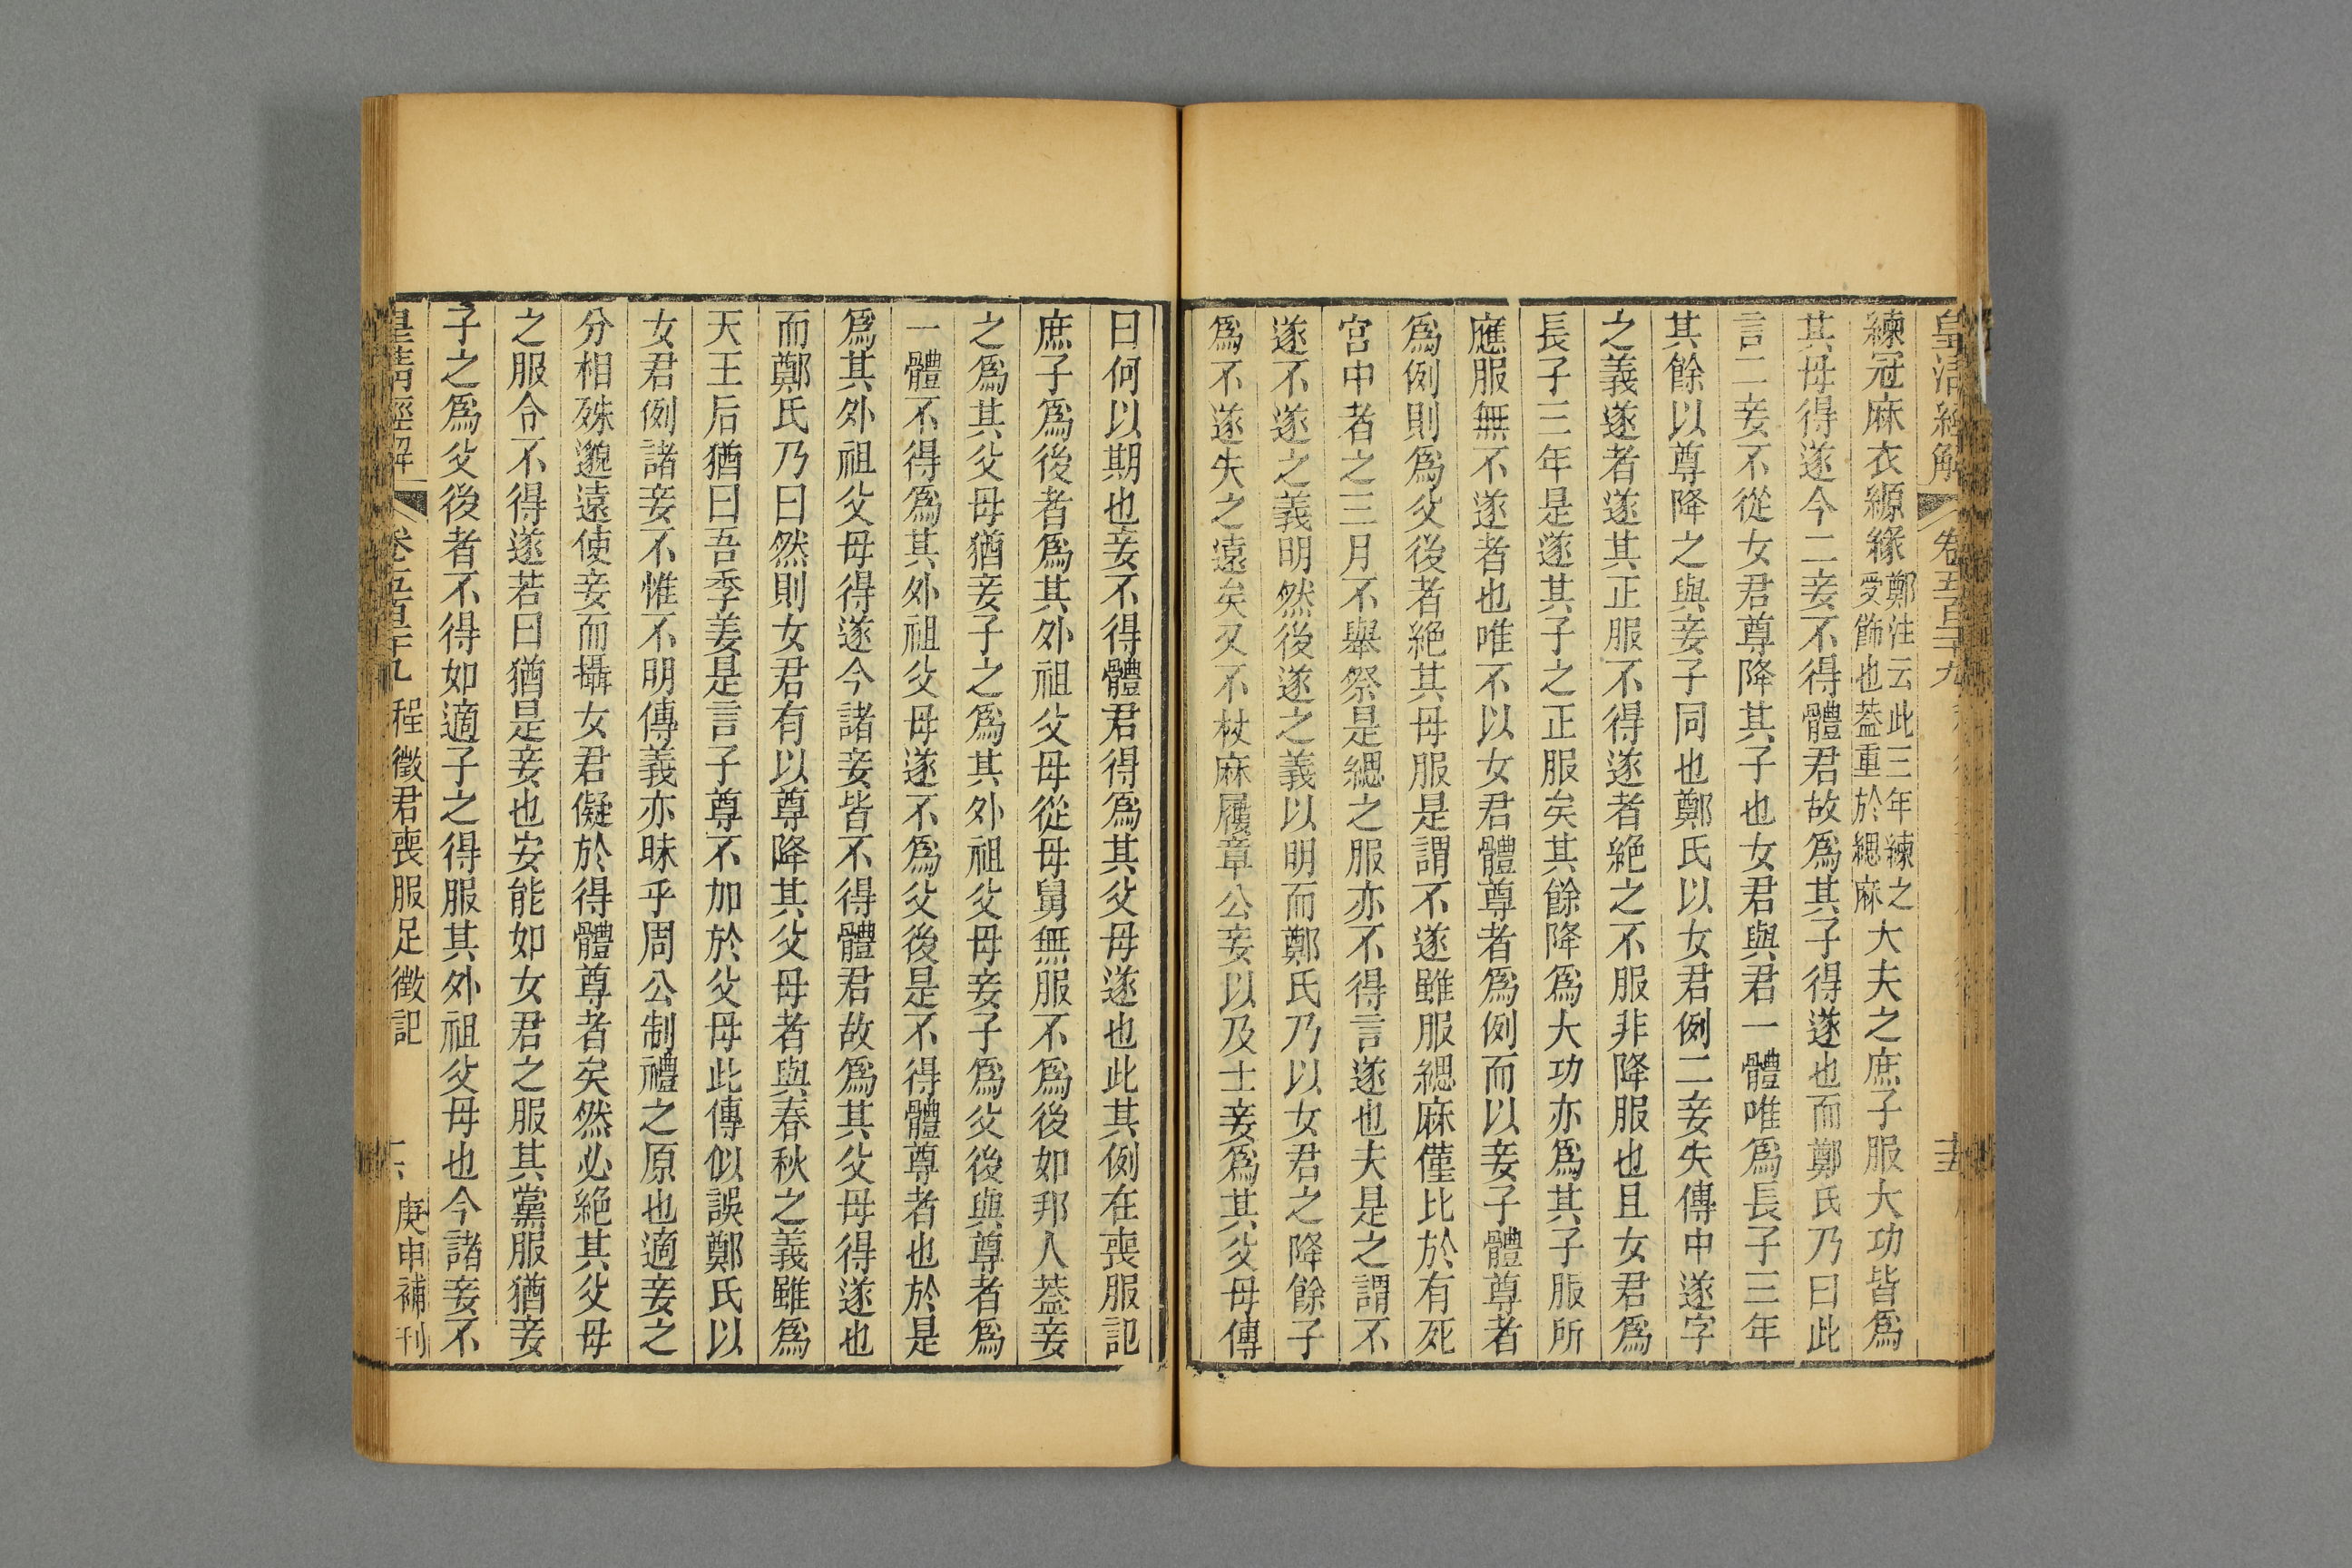 皇清經解
卷五百二十九
練冠麻衣縓緣鄭注云此三年練之受飾也葢重於緦麻大夫之庶子服大功皆爲
其母得遂今二妾不得體君故爲其子得遂也而鄭氏乃曰此
言二妾不從女君尊降其子也女君與君一體唯爲長子三年
其餘以尊降之與妾子同也鄭氏以女君例二妾失傳中遂字
之義遂者遂其正服不得遂者絶之不服非降服也且女君爲
長子三年是遂其子之正服矣其餘降爲大功亦爲其子服所
應服無不遂者也唯不以女君體尊者爲例而以妾子體尊者
爲例則爲父後者絶其母服是謂不遂雖服緦麻僅比於有死
宮中者之三月不舉祭是緦之服亦不得言遂也夫是之謂不
遂不遂之義明然後遂之義以明而鄭氏乃以女君之降餘子
爲不遂失之遠矣又不杖麻屨章公妾以及士妾爲其父母傳
曰何以期也妾不得體君得爲其父母遂也此其例在喪服記
庶子爲後者爲其外祖父母從母舅無服不爲後如邦人葢妾
之爲其父母猶妾子之爲其外祖父母妾子爲父後與尊者爲
一體不得爲其外祖父母遂不爲父後是不得體尊者也於是
爲其外祖父母得遂今諸妾皆不得體君故爲其父母得遂也
而鄭氏乃曰然則女君有以尊降其父母者與春秋之義雖爲
天王后猶曰吾季姜是言子尊不加於父母此傳似誤鄭氏以
女君例諸妾不惟不明傳義亦昧乎周公制禮之原也適妾之
分相殊邈遠使妾而攝女君儗於得體尊者矣然必絶其父母
之服令不得遂若曰猶是妾也安能如女君之服其黨服猶妾
子之爲父後者不得如適子之得服其外祖父母也今諸妾不
皇清經解
卷五百二十九
程徵君喪服足徵記
庚申補刊